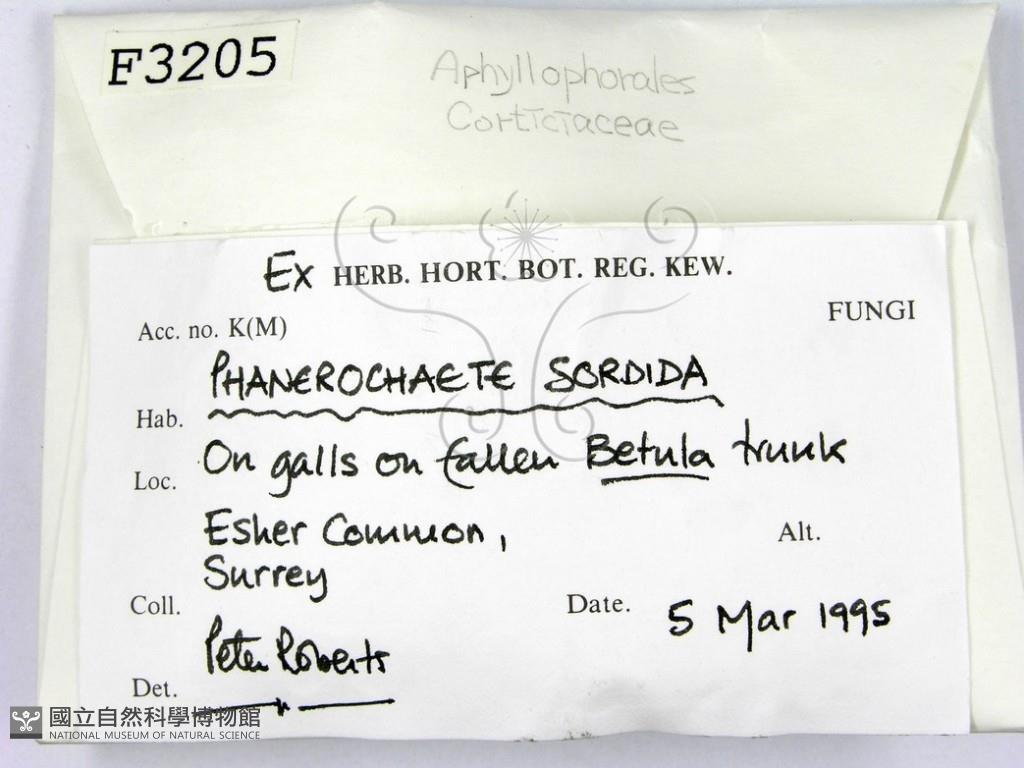 F3205
Aphyllophorales
Corticiaceae
Ex HERB. HORT. BOT. REG. KEW.
FUNGI
Acc. no. K(M)
PHANEROCHAETE SORDIDA
Hab.
On galls on fallen Betula trunk
Loc.
Esher Common,
Alt.
Surrey
Coll.
Date. 5 Mar 1995
Peter Roberts
Det.
國立自然科學博物館
NATIONAL MUSEUM OF NATURAL SCIENCE